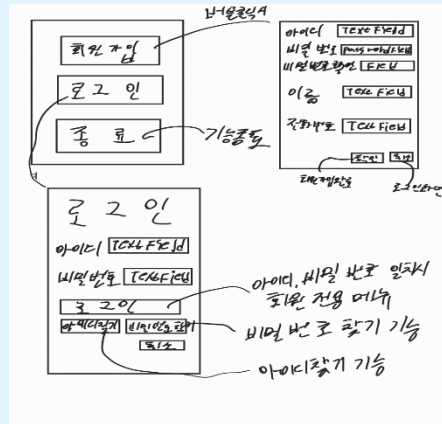 회원가입
로그인
종료
기능종료
아이디 Text Field
비밀 번호
비밀번호확인 Field
이름 Text Field
전화번호 Text Field
로그인
아이디 Text Field
비밀번호 Text Field
로그인
아이디찾기 비밀번호찾기
취소
아이디, 비밀 번호 일치시
회원 전용 메뉴
비밀 번호 찾기 기능
아이디찾기 기능